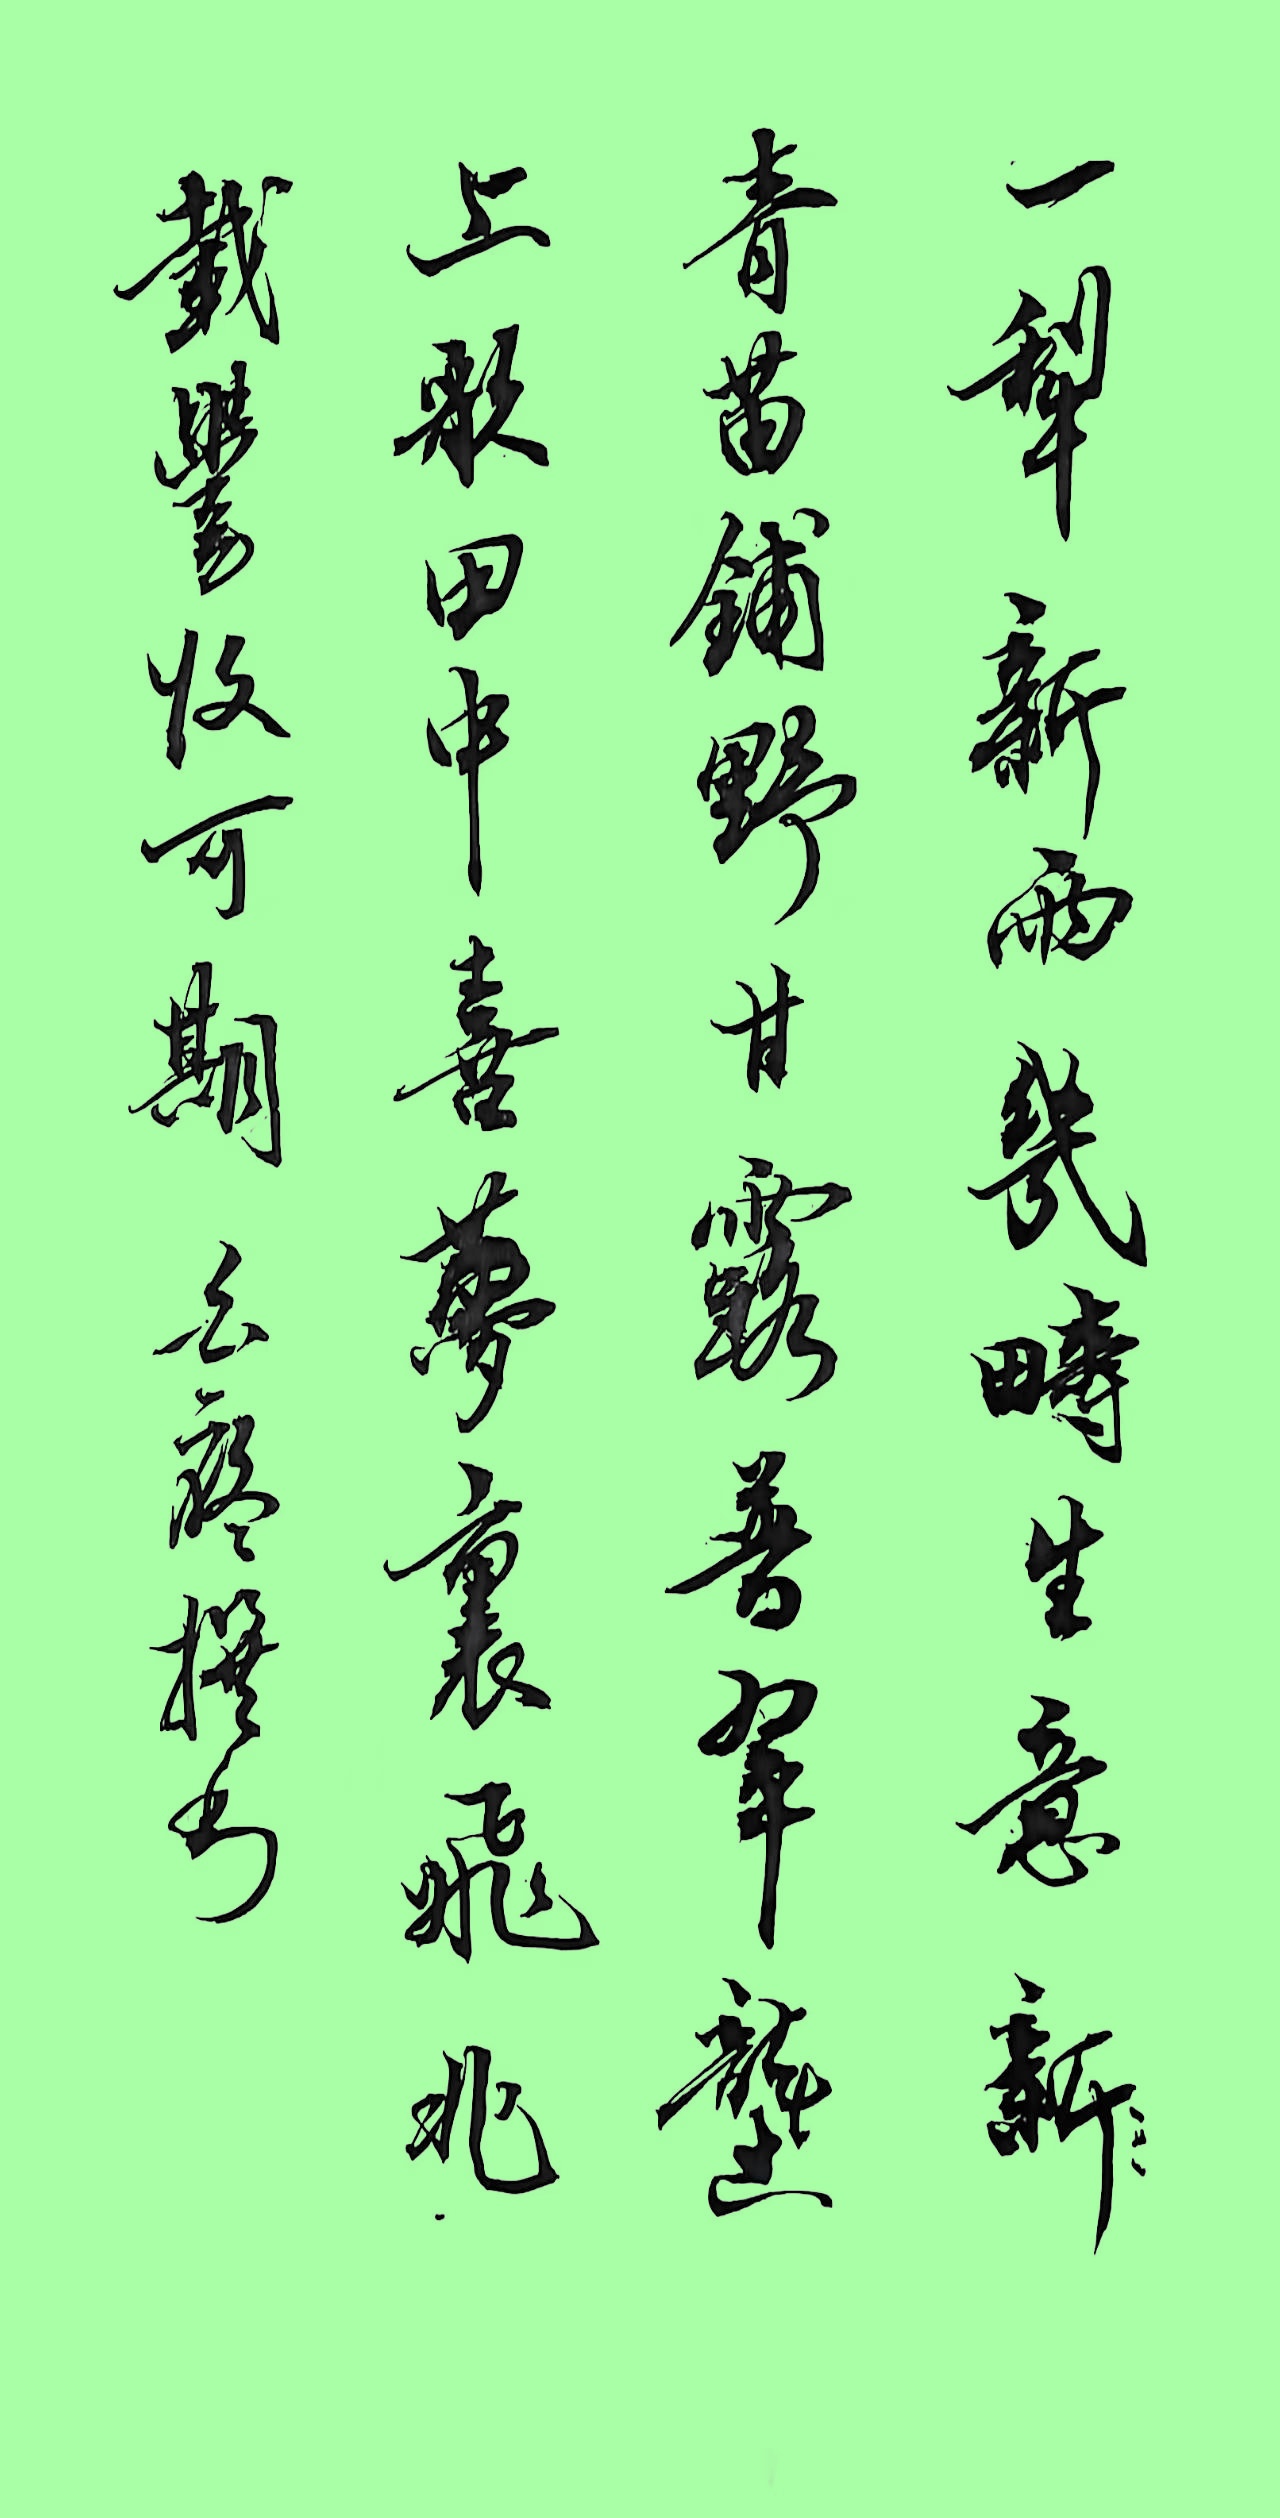 一犁新雨幾疇生意新
青苗鋪野甘露普壟
上歌田中喜夢裏飛兆
載豐收可期 撰书